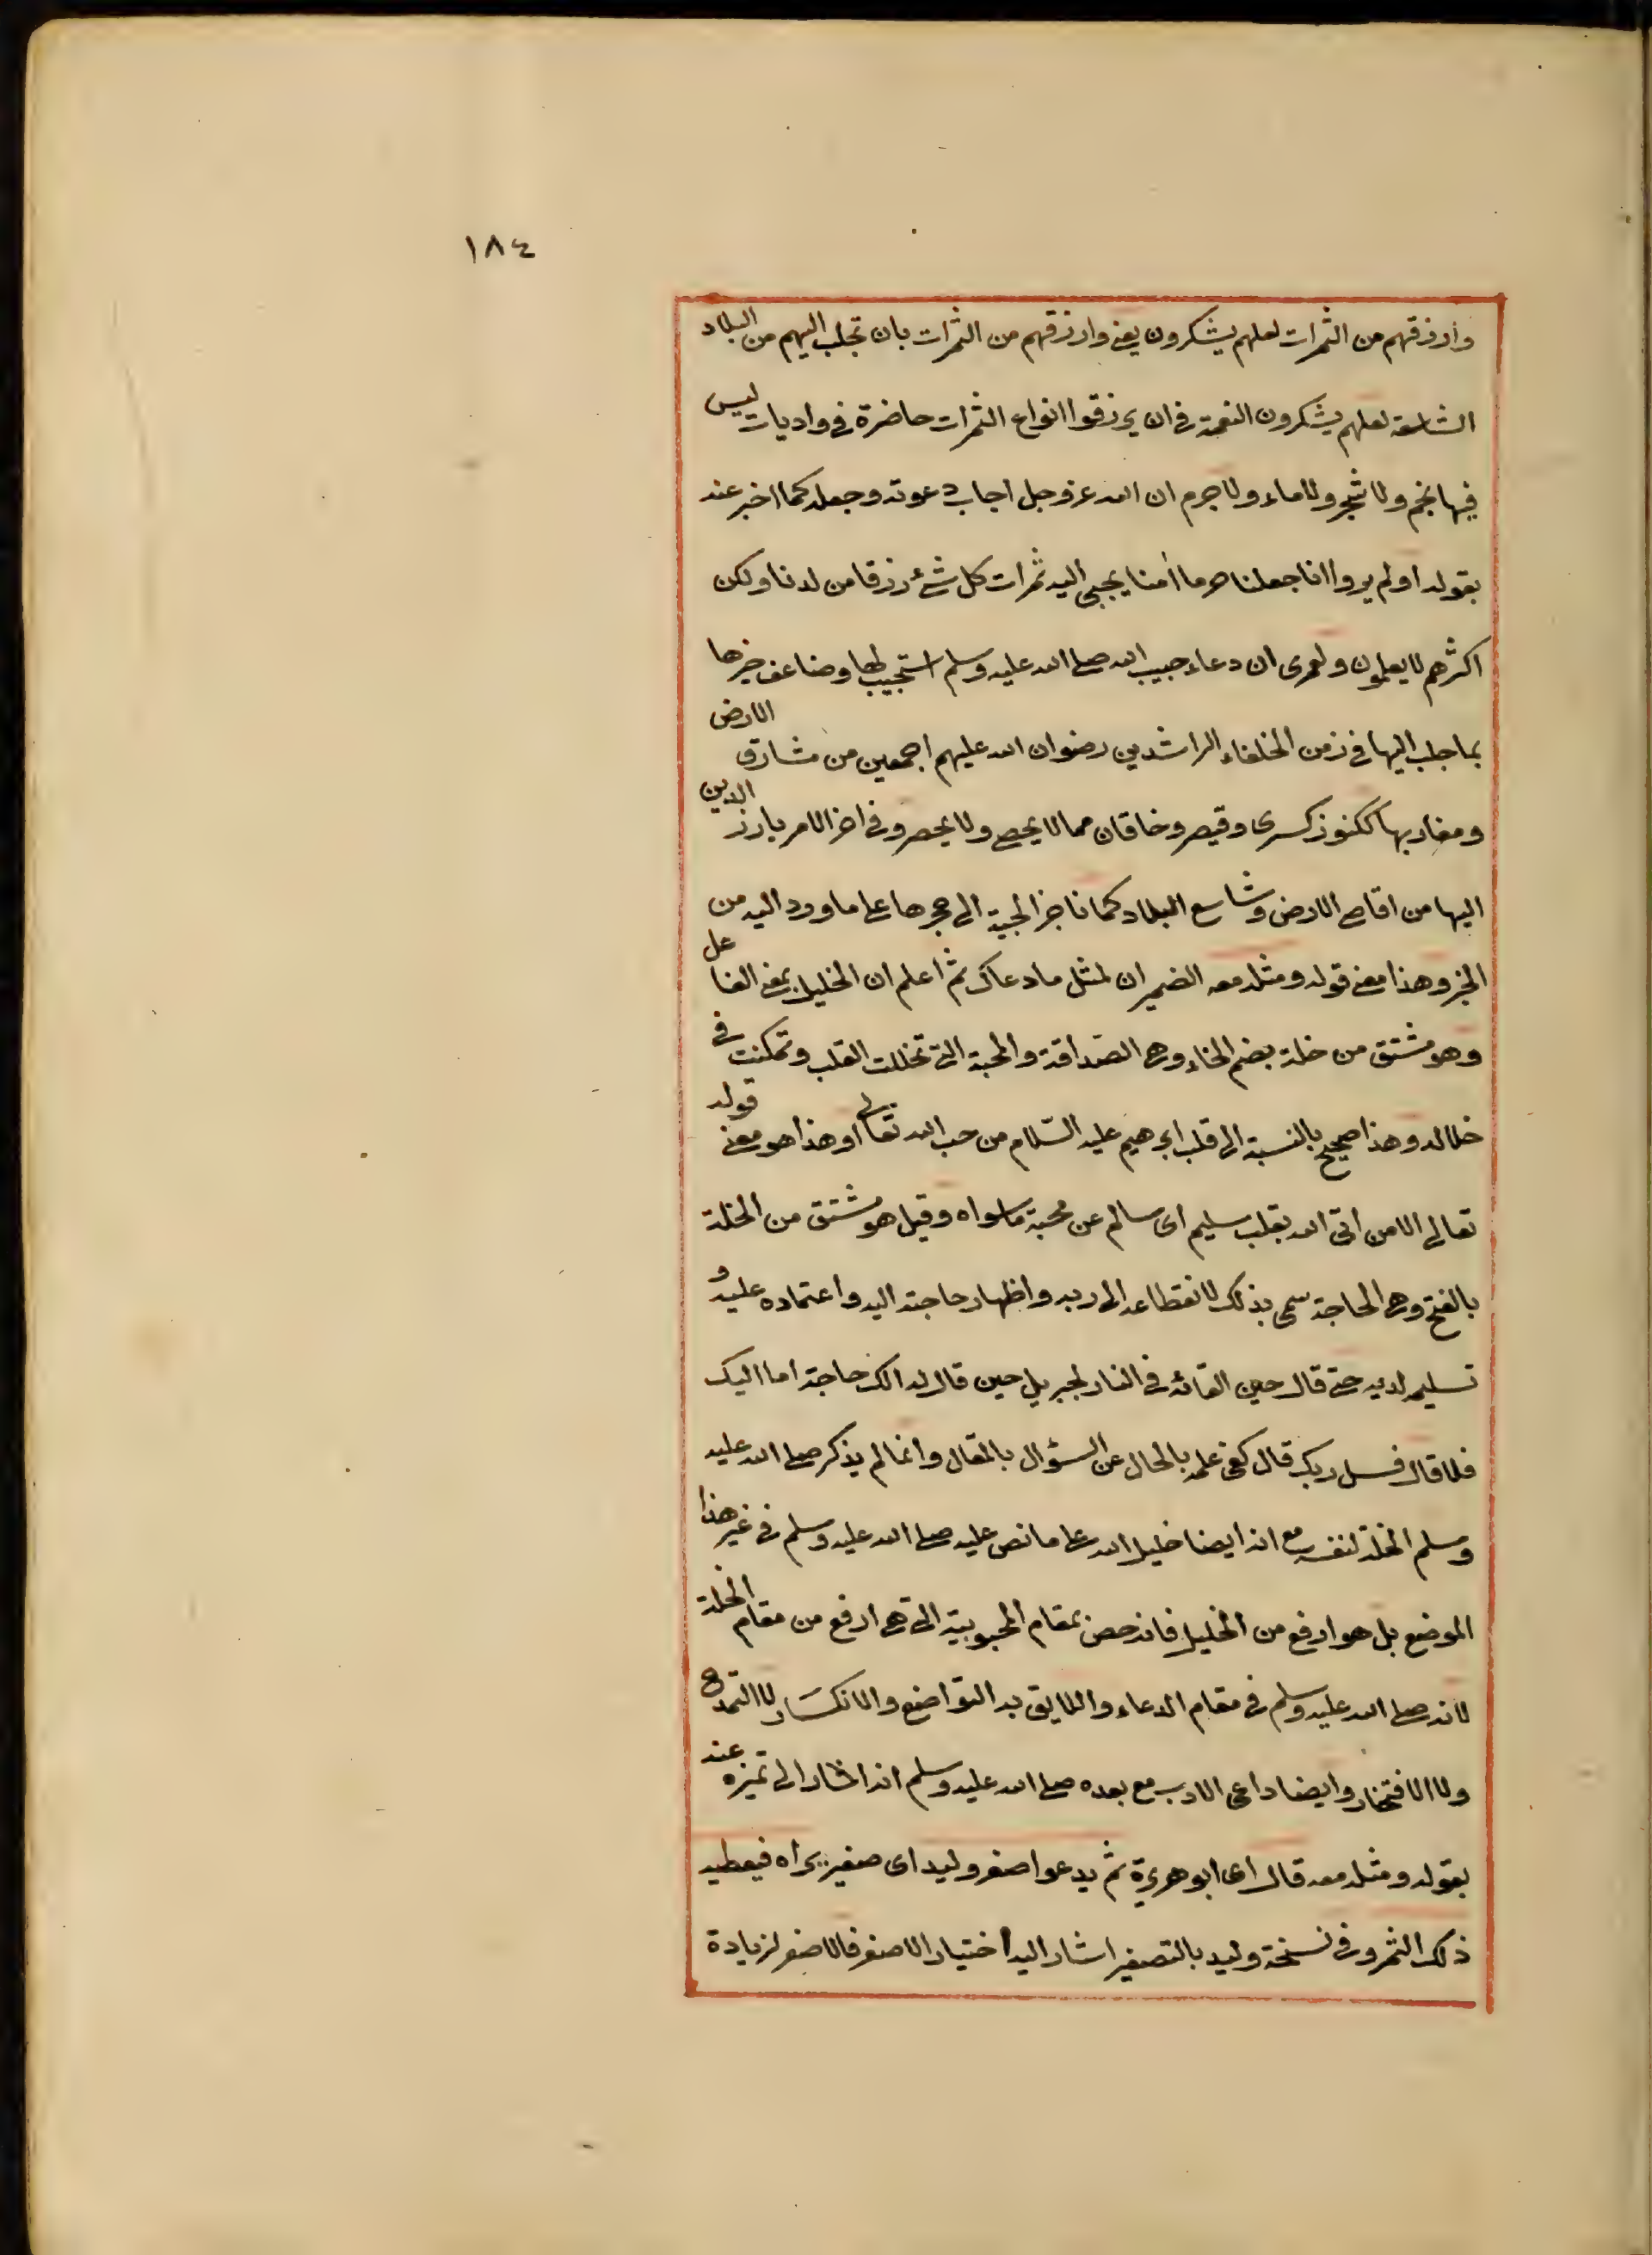 ١٨٤
وارزقهم من الثمرات لعلهم يشكرون يعنے وارزقهم من الثمرات بان تجلب اليهم من البلاد
الشاسعة لعلهم يشكرون النعمة فى ان يرزقوا انواع الثمرات حاضرة فى واد يباب ليس
فيها نجم ولا شجر ولا ماء ولا جرم ان الله عز وجل اجاب دعوته وجعله كما اخبر عنه
بقوله اولم يروا انا جعلنا حرما اٰمنا يجبى اليه ثمرات كل شئ رزقا من لدنا ولكن
اكثرهم لا يعلمون ولعمرى ان دعاء حبيب الله صلے الله عليه وسلم استجيب لها وضاعف خيرها
بما جلب اليها فى زمن الخلفاء الراشدين رضوان الله عليهم اجمعين من مشارق الارض
ومغاربها ككنوز كسرى وقيصر وخاقان مما لا يحصے ولا يحصر وفى اخر الامر يارز الدين
اليها من اقاصے الارض وشاسع البلاد كما تارز الحية الى جحرها علے ما ورد اليه من
الخبر وهذا معنے قوله ومثله معه الضمير ان لمثل ما دعاك ثم اعلم ان الخليل بمعنے الفاعل
وهو مشتق من خلة بضم الخاء وهى الصداقة والمحبة التے تخللت القلب وتمكنت فى
خلاله وهذا صحيح بالنسبة الى قلب ابرهيم عليه السّلام من حب الله تعالى او هذا هو معنے قوله
تعالى الا من اتى الله بقلب سليم اى سالم عن محبة ما سواه وقيل هو مشتق من الخلة
بالفتح وهى الحاجة سمى بذلك لانقطاعه الى ربه واظهار حاجته اليه واعتماده عليه و
تسليمه لديه حتے قال حين القائه فى النار لجبريل حين قال له الك حاجة اما اليك
فلا قال فسل ربك قال كفى علمه بالحال عن السؤال بالمقال وانما لم يذكر صلے الله عليه
وسلم الخلة لنفسه مع انه ايضا خليل الله علے ما نص عليه صلے الله عليه وسلم فى غير هذا
الموضع بل هو ارفع من الخليل فانه خص بمقام المحبوبية التے هى ارفع من مقام الخلة
لانه صلے الله عليه وسلم فى مقام الدعاء واللايق به التواضع والانكسَار لا التمدح
ولا الافتخار وايضا داعى الادب مع بعده صلے الله عليه وسلم انه اشار الى تميزه عنه
بقوله ومثله معه قال اى ابو هريرة ثم يدعوا اصغر وليد اى صغير يراه فيعطيه
ذلك الثمر وفى نسخة وليد بالتصغير اشار اليه اختيار الاصغر فالاصغر لزيادة